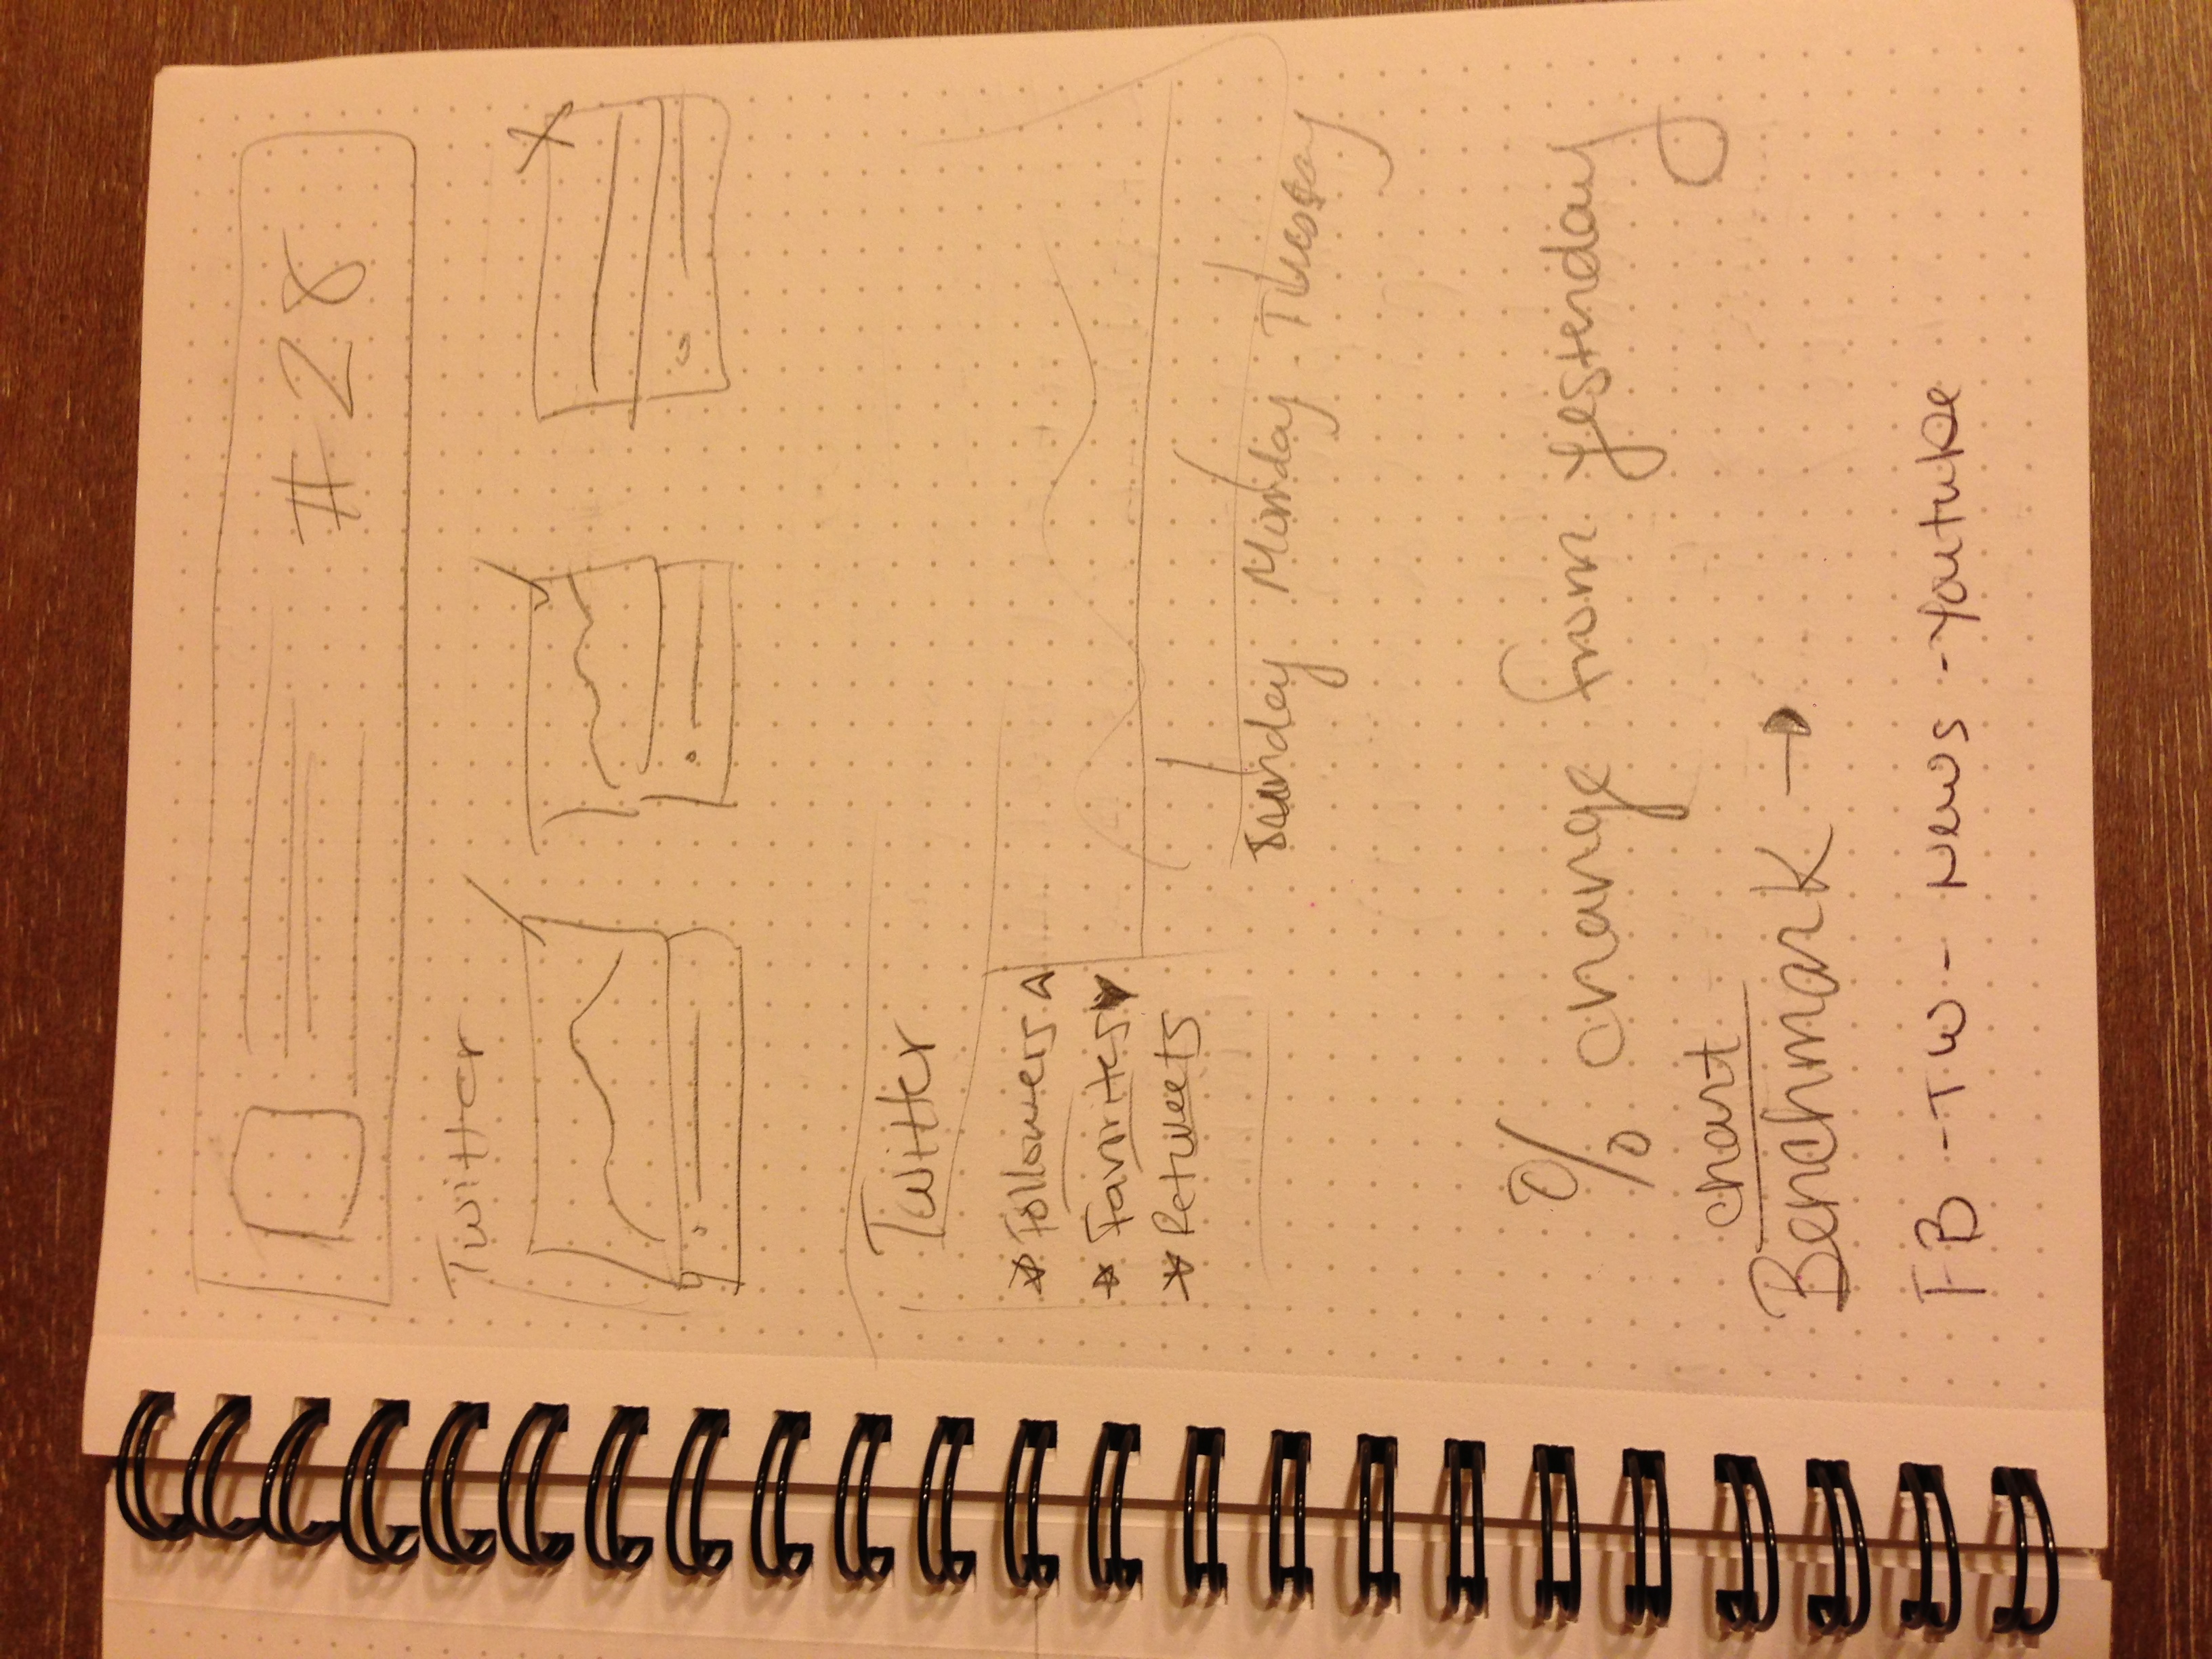 # 28
Twitter
Twitter
Followers
Favorites
Retweets
Sunday Monday Tuesday
% change from yesterday
chart
Benchmark →
FB - TW - News - Youtube